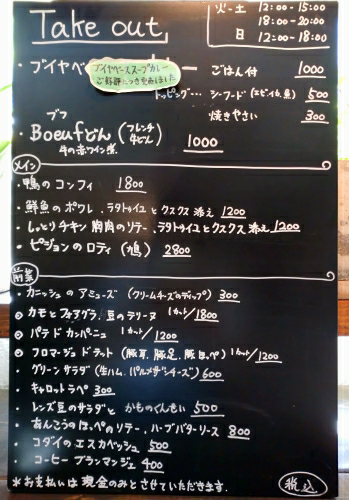 Take out
火-土 12:00-15:00
18:00-20:00
日 12:00-18:00
・ブイヤベ ー ごはん付 1000
ブイヤベーススープカレー
ご好評につき
トッピング… シーフード(エビ、イカ、魚) 500
焼きやさい 300
ブフ
・Boeufどん (フレンチ牛どん) 1000
牛の赤ワイン煮
メイン
・鴨のコンフィ 1800
・鮮魚のポワレ、ラタトゥイユとクスクス添え 1200
・しっとりチキン胸肉のソテー、ラタトゥイユとクスクス添え 1200
・ピジョンのロティ(鳩) 2800
前菜
・カニッシュのアミューズ (クリームチーズのディップ) 300
カモとフォアグラ、豆のテリーヌ 1カット/1800
パテドカンパーニュ 1カット/1200
フロマージュドテット (豚耳、豚足、豚ほっぺ) 1カット/1200
・グリーンサラダ (生ハム、パルメザンチーズ) 600
・キャロットラペ 300
・レンズ豆のサラダと かものくんせい 500
・あんこうのほっぺのソテー、ハーブバターソース 800
・コダイのエスカベッシュ 500
・コーヒーブランマンジェ 400
*お支払いは現金のみとさせていただきます. 税込